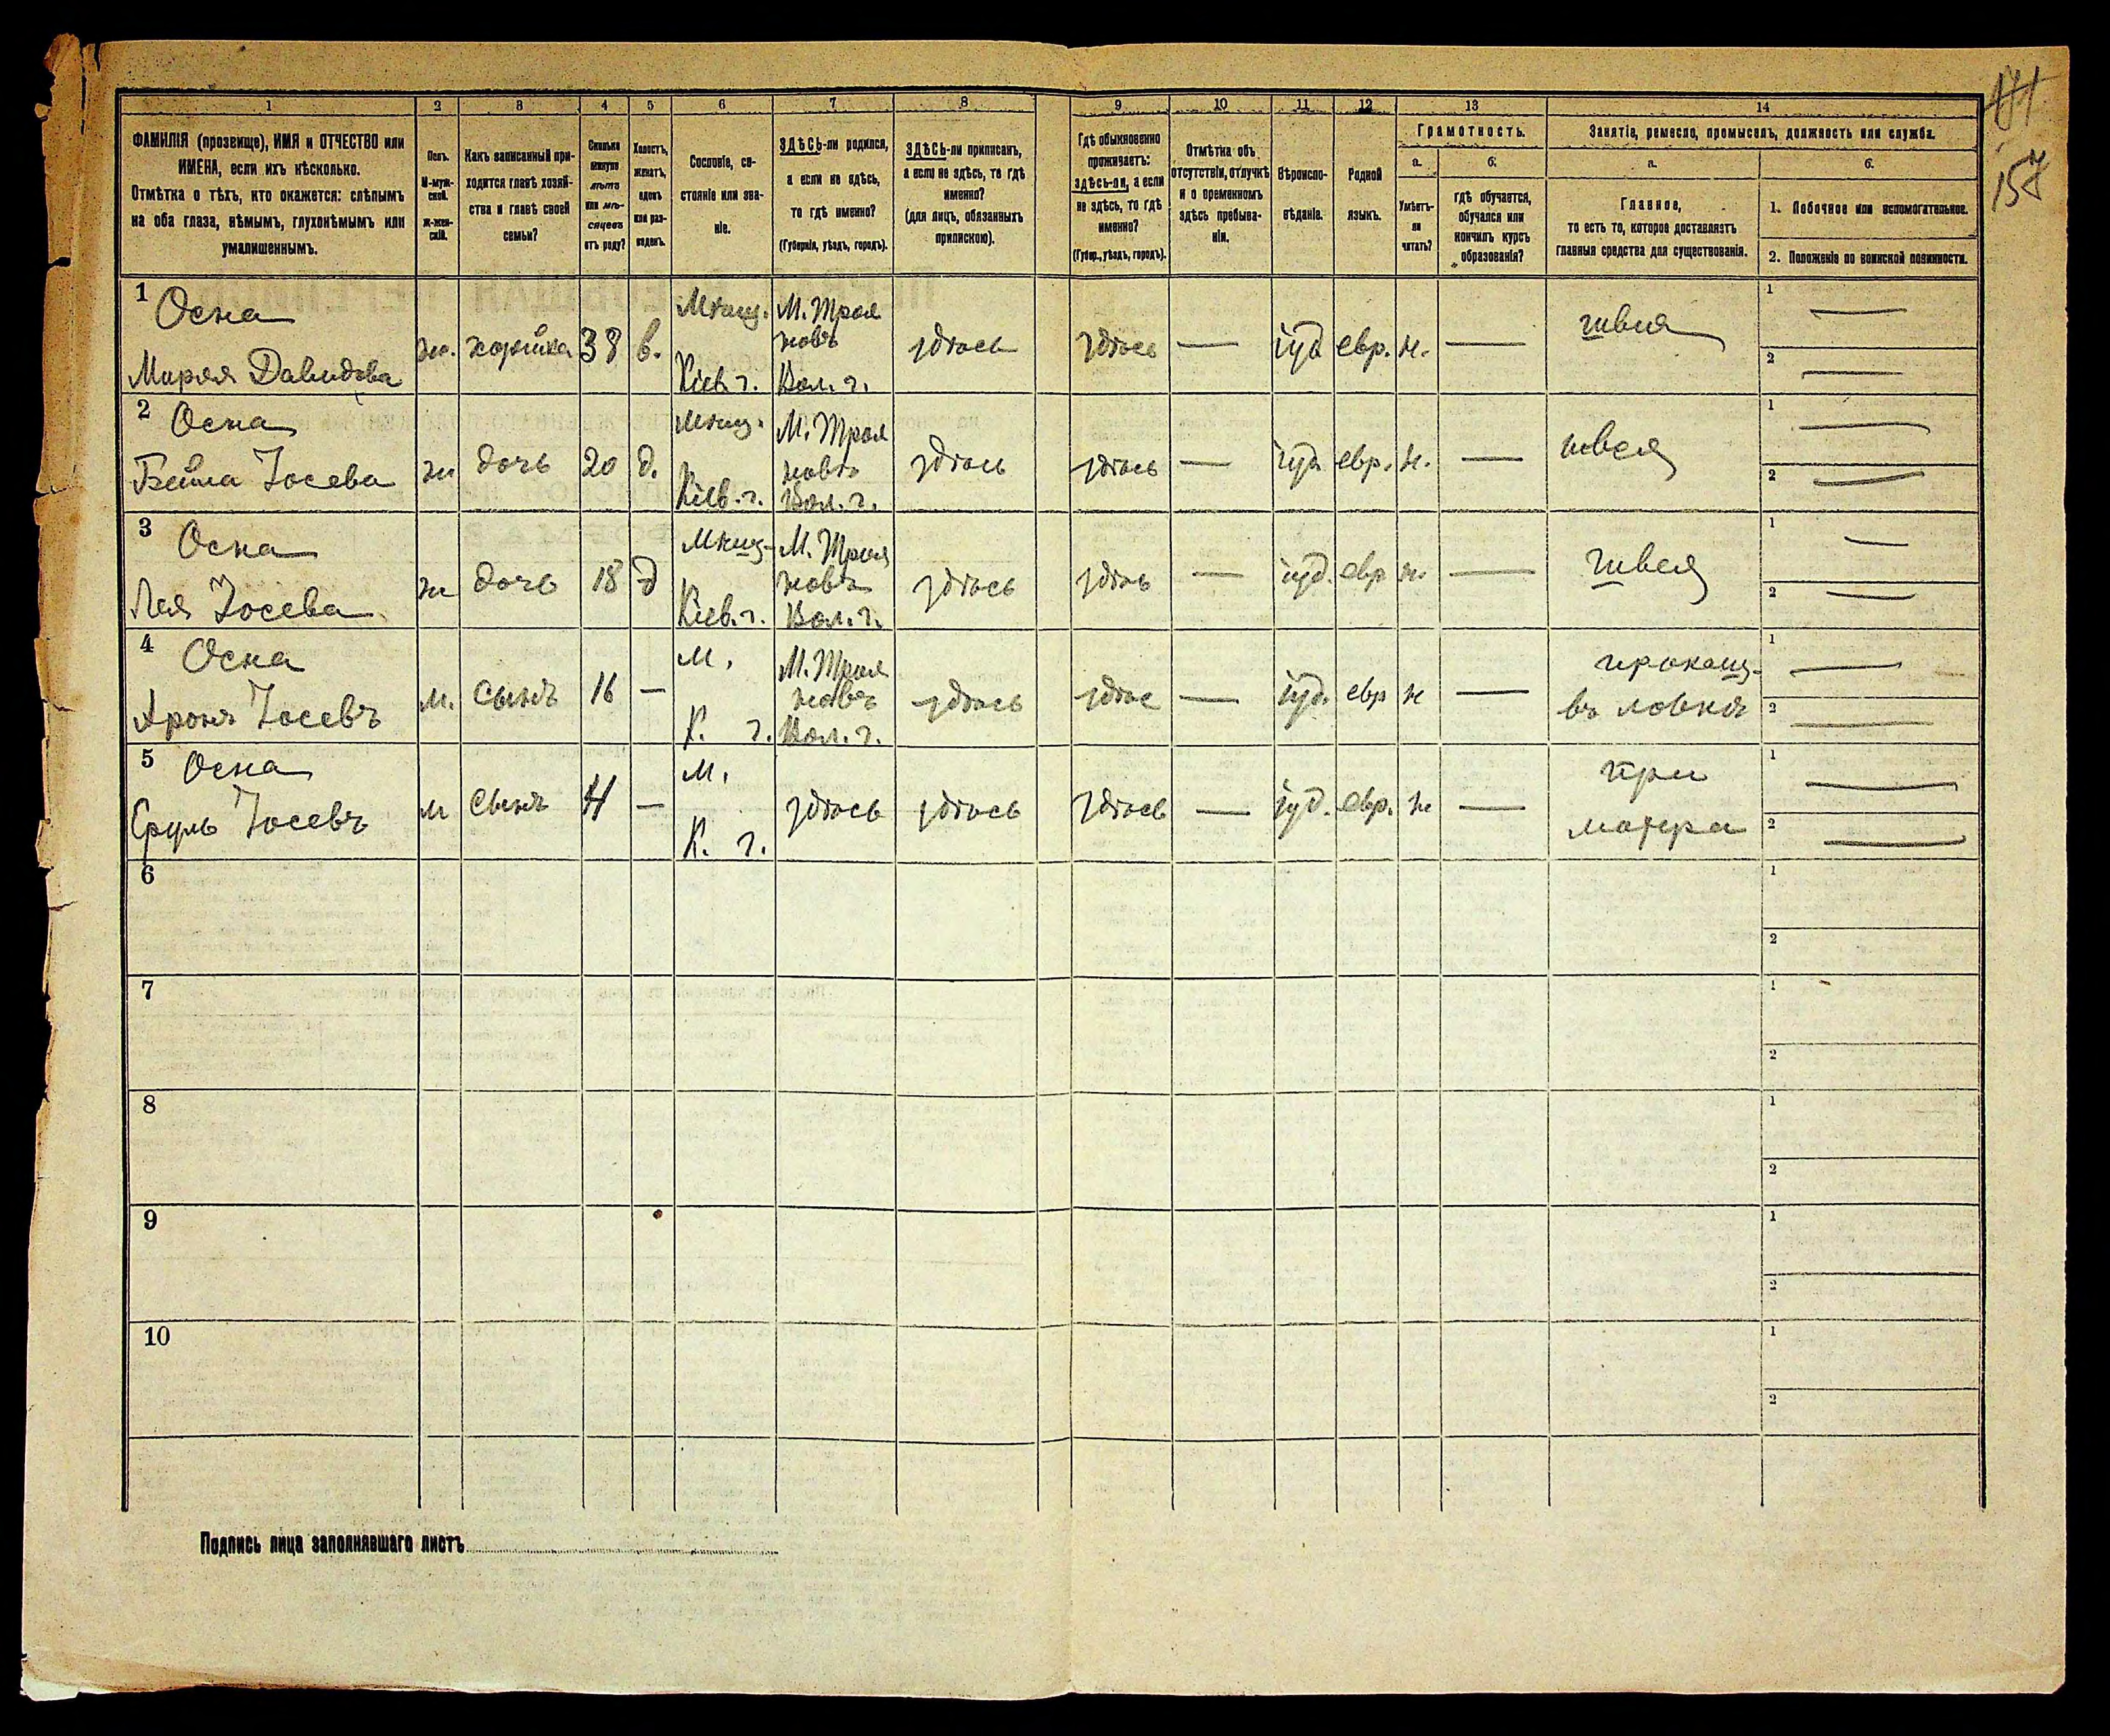 171
157
1 2 3 4 5 6 7 8 9 10 11 12 13 14
ФАМИЛІЯ (прозвище), ИМЯ и ОТЧЕСТВО или
ИМЕНА, если ихъ нѣсколько.
Отмѣтка о тѣхъ, кто окажется: слѣпымъ
на оба глаза, нѣмымъ, глухонѣмымъ или
умалишеннымъ.
Полъ.
М-муж-
ской.
ж-жен-
скій.
Какъ записанный при-
ходится главѣ хозяй-
ства и главѣ своей
семьи?
Сколько
минуло
лѣтъ
или мѣ-
сяцевъ
отъ роду?
Холостъ,
женатъ,
вдовъ
или раз-
веденъ.
Сословіе, со-
стояніе или зва-
ніе.
ЗДѢСЬ-ли родился,
а если не здѣсь,
то гдѣ именно?
(Губернія, уѣздъ, городъ).
ЗДѢСЬ-ли приписанъ,
а если не здѣсь, то гдѣ
именно?
(для лицъ, обязанныхъ
припискою).
Гдѣ обыкновенно
проживаетъ:
здѣсь-ли, а если
не здѣсь, то гдѣ
именно?
(Губер., уѣздъ, городъ).
Отмѣтка объ
отсутствіи, отлучкѣ
и о временномъ
здѣсь пребыва-
ніи.
Вѣроиспо-
вѣданіе.
Родной
языкъ.
Грамотность.
а.
Умѣетъ-
ли
читать?
б.
гдѣ обучается,
обучался или
кончилъ курсъ
образованія?
Занятіе, ремесло, промыселъ, должность или служба.
а.
Главное,
то есть то, которое доставляетъ
главныя средства для существованія.
б.
1. Побочное или вспомогательное.
2. Положеніе по воинской повинности.
1 Осна
Миряя Давидова
ж. хозяйка 38 в.
Мѣщ.
Кіев. г.
М. Троя
новъ
Вол. г.
здѣсь здѣсь — іуд евр. н. —
швея
1 —
2 —
2 Осна
Бейла Іосева
ж дочь 20 д.
Мѣщ.
Кіев. г.
М. Троя
новъ
Вол. г.
здѣсь здѣсь — іуд евр. н. —
швея
1 —
2 —
3 Осна
Лея Іосева
ж дочь 18 д
Мѣщ.
Кіев. г.
М. Троя
новъ
Вол. г.
здѣсь здѣсь — іуд. евр н. —
швея
1 —
2 —
4 Осна
Аронъ Іосевъ
м. сынъ 16 —
М.
К. г.
М. Троя
новъ
Вол. г.
здѣсь здѣс — іуд. евр н —
прикащ.
въ лавкѣ
1 —
2 —
5 Осна
Сруль Іосевъ
м сынъ 4 —
М.
К. г.
здѣсь здѣсь здѣсь — іуд. евр. н —
при
матери
1 —
2 —
6
1
2
7
1
2
8
1
2
9
1
2
10
1
2
Подпись лица заполнявшаго листъ